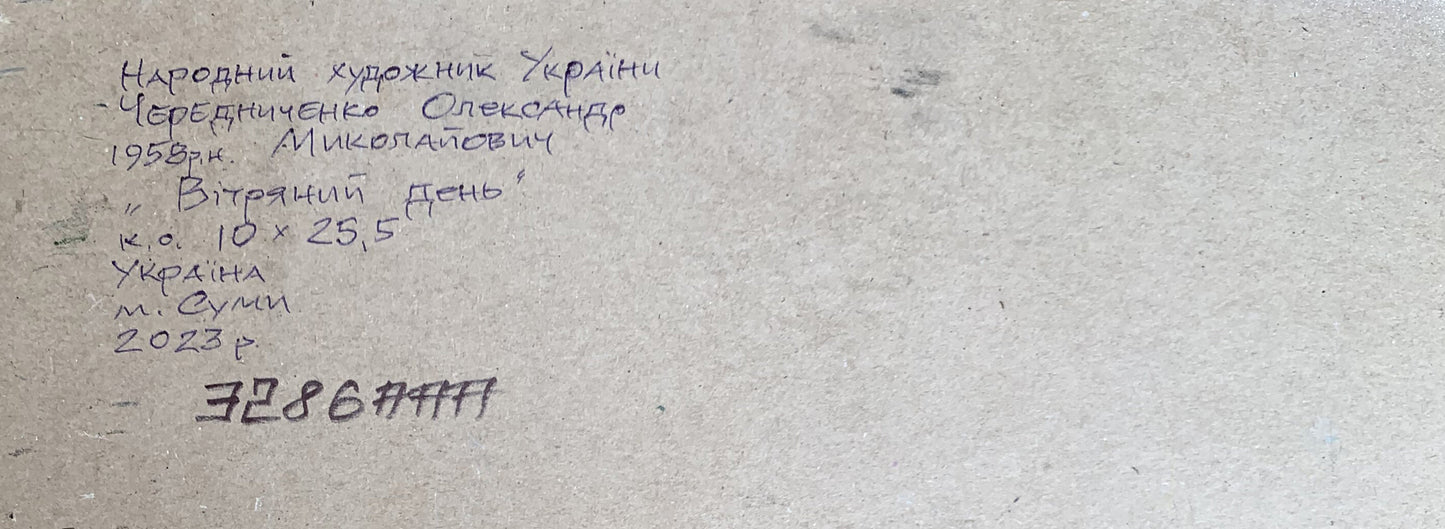 Народний художник України
Чередниченко Олександр
1958р.н. Миколайович
„ Вітряний день“
к.о. 10 x 25,5
Україна
м. Суми
2023 р.